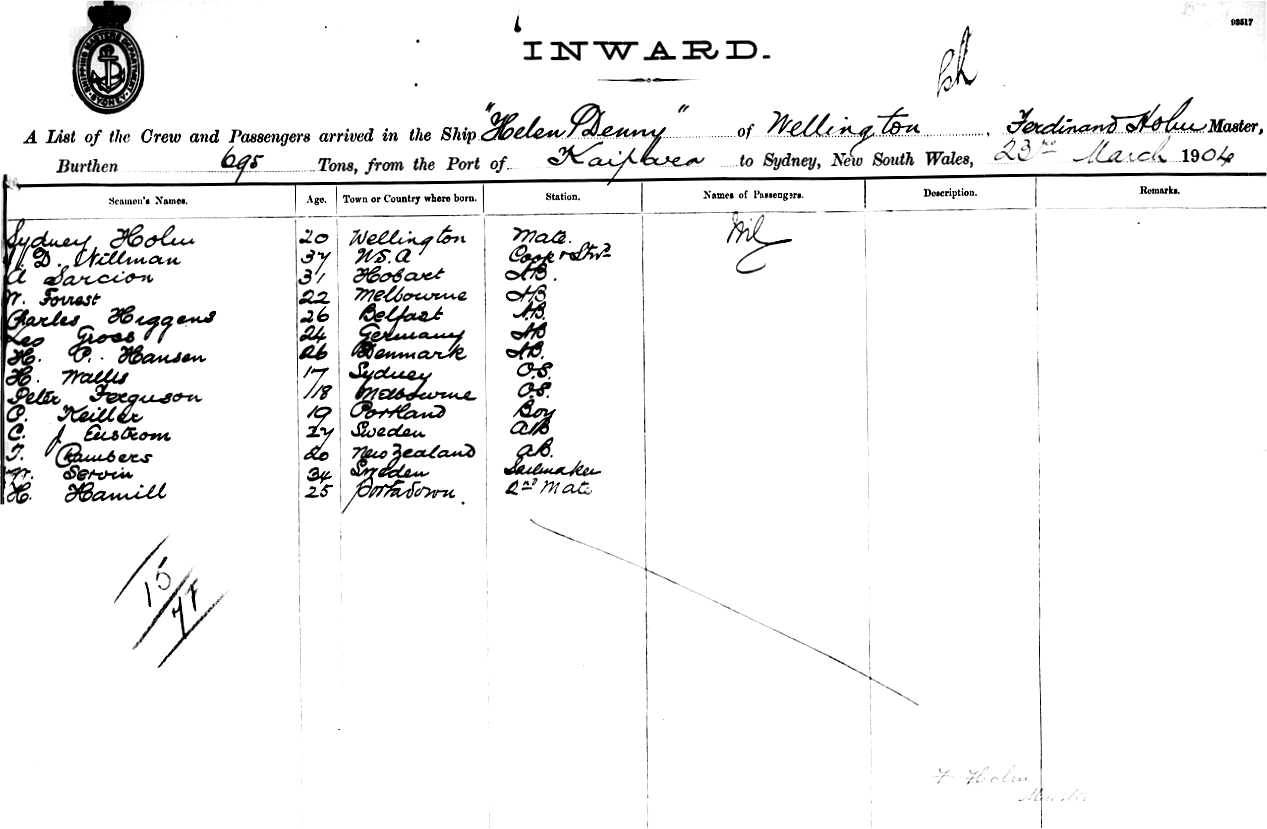 98517
INWARD.
SHIPPING MASTERS DEPARTMENT SYDNEY
A List of the Crew and Passengers arrived in the Ship "Helen Denny" of Wellington, Ferdinand Holm Master,
Burthen 695 Tons, from the Port of Kaipara to Sydney, New South Wales, 23rd March 1904
Seamen's Names. Age. Town or Country where born. Station. Names of Passengers. Description. Remarks.
Sydney Holm 20 Wellington Mate. Nil
D. Nillman 37 U.S.A Cook & Stwd
A Sarcion 31 Hobart AB.
W. Forrest 22 Melbourne AB
Charles Higgens 26 Belfast AB.
Leo Gross 24 Germany AB
H. P. Hansen 26 Denmark AB.
H. Wallis 17 Sydney O.S.
Peter Ferguson 18 Melbourne O.S.
P. Keiller 19 Portland Boy
C. J Enstrom 27 Sweden AB
T. Chambers 20 New Zealand AB.
Servin 34 Sweden Sailmaker
H. Hamill 25 Portadown. 2nd Mate
15
F Holm
Master